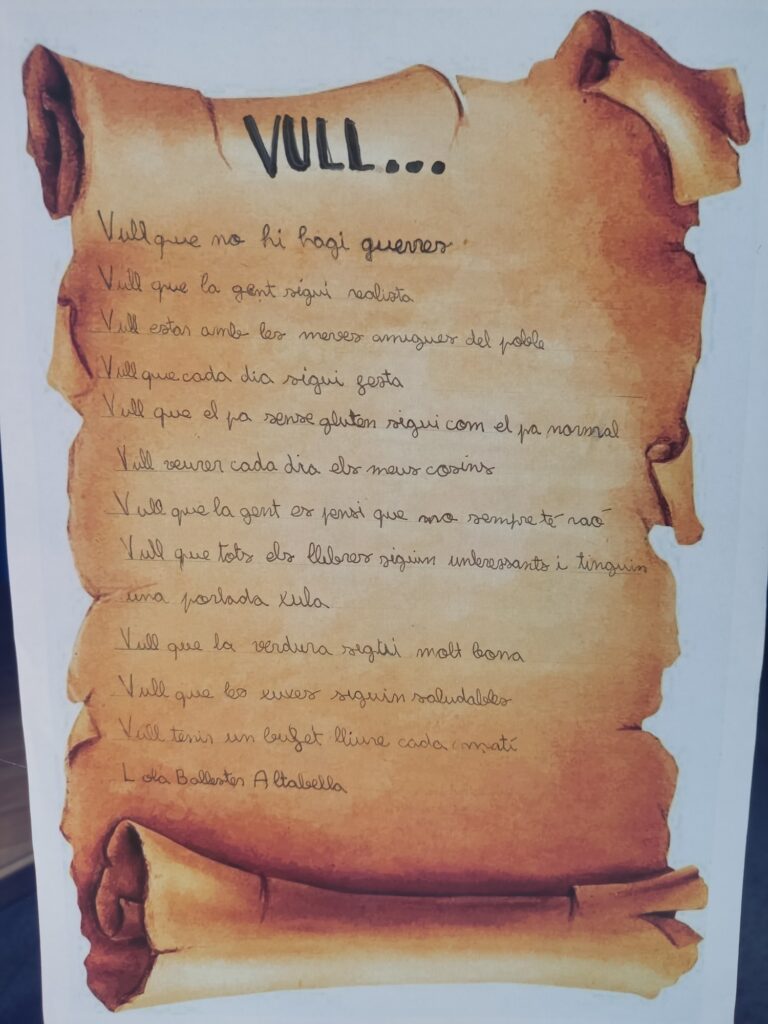 VULL...
Vull que no hi hagi guerres
Vull que la gent sigui realista
Vull estar amb les meves amigues del poble
Vull que cada dia sigui festa
Vull que el pa sense gluten sigui com el pa normal
Vull veurer cada dia els meus cosins
Vull que la gent es pensi que no sempre té raó
Vull que tots els llibres siguin interessants i tinguin
una portada xula
Vull que la verdura sigui molt bona
Vull que les xuxes siguin saludables
Vull tenir un bufet lliure cada matí
Lola Ballester Altabella